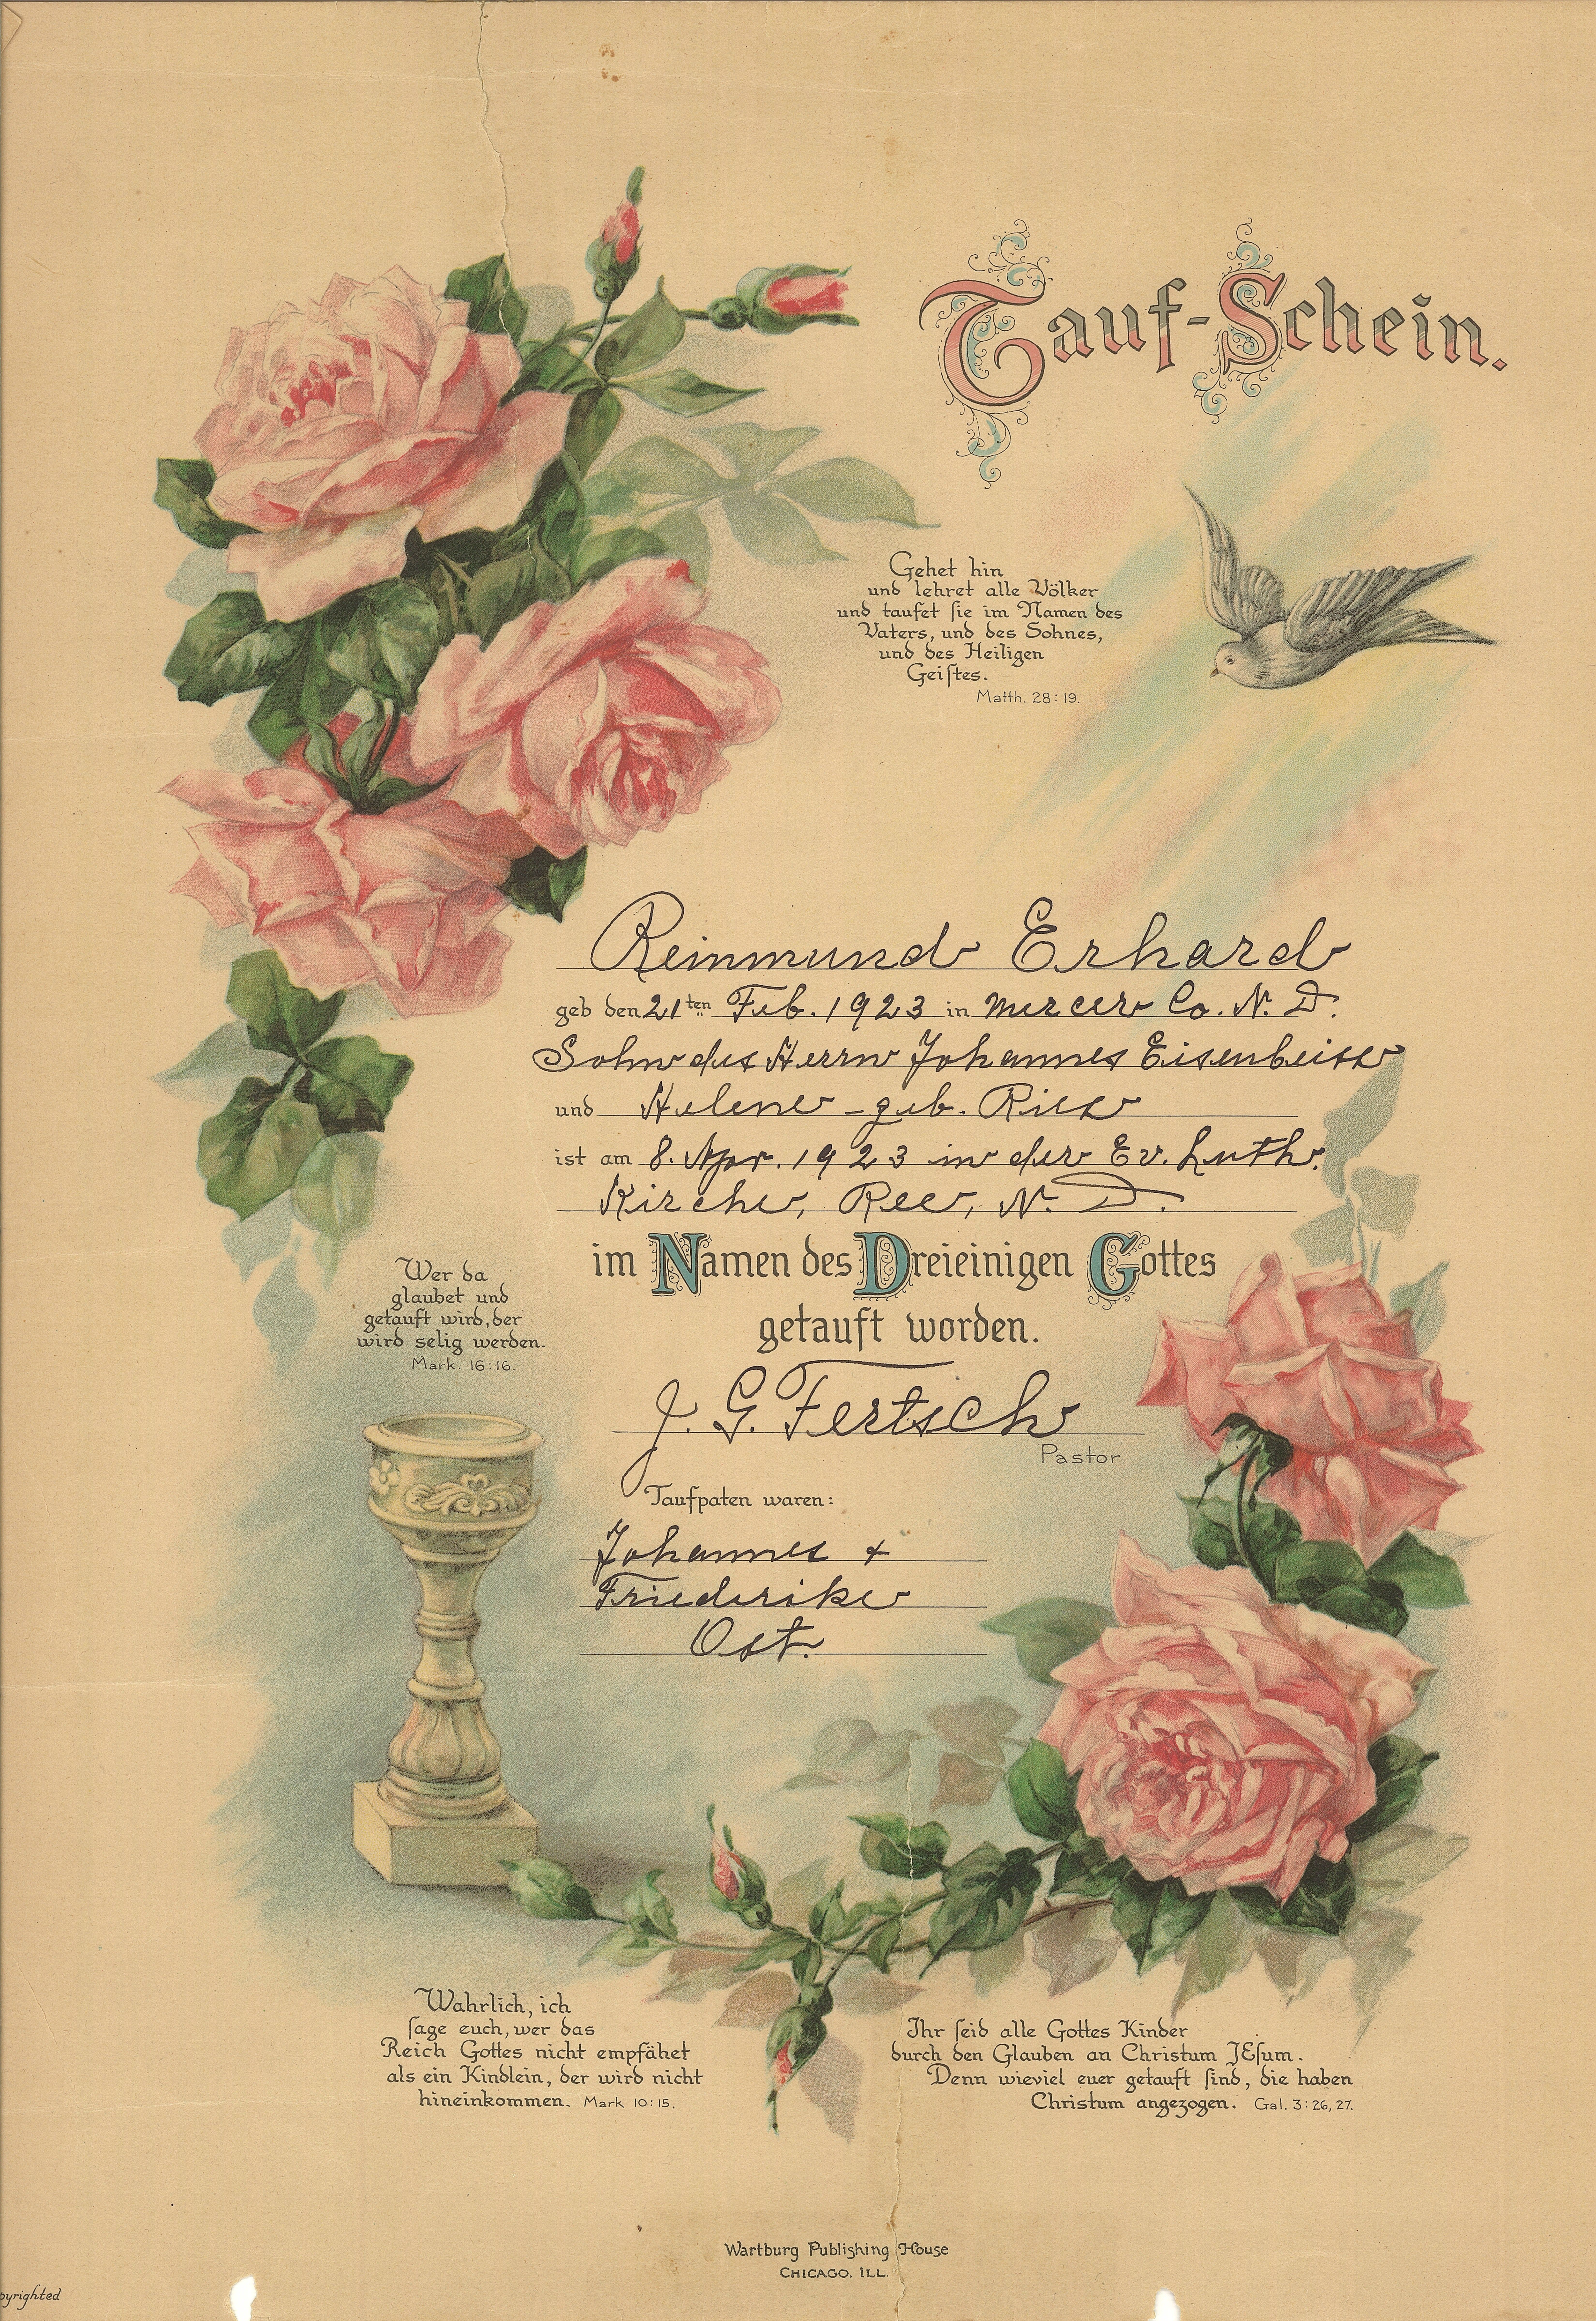 Tauf-Schein.
Gehet hin
und lehret alle Völker
und taufet sie im Namen des
Vaters, und des Sohnes,
und des Heiligen
Geistes.
Matth. 28:19.
Reinmund Erhard
geb den 21ten Feb. 1923 in Mercer Co. N. D.
Sohn des Herrn Johannes Eisenbeiss
und Helene geb. Ries
ist am 8. Apr. 1923 in der Ev. Luth.
Kirche, Ree, N. D.
im Namen des Dreieinigen Gottes
getauft worden.
J. G. Fertsch
Pastor
Taufpaten waren:
Johannes +
Friederike
Ost.
Wer da
glaubet und
getauft wird, der
wird selig werden.
Mark. 16:16.
Wahrlich, ich
sage euch, wer das
Reich Gottes nicht empfähet
als ein Kindlein, der wird nicht
hineinkommen. Mark 10:15.
Ihr seid alle Gottes Kinder
durch den Glauben an Christum JEsum.
Denn wieviel euer getauft sind, die haben
Christum angezogen. Gal. 3:26,27.
Wartburg Publishing House
CHICAGO. ILL.
pyrighted